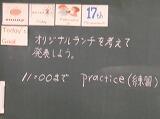 17th
Today's
Goal
オリジナルランチを考えて
発表しよう。
11:00まで practice(練習)